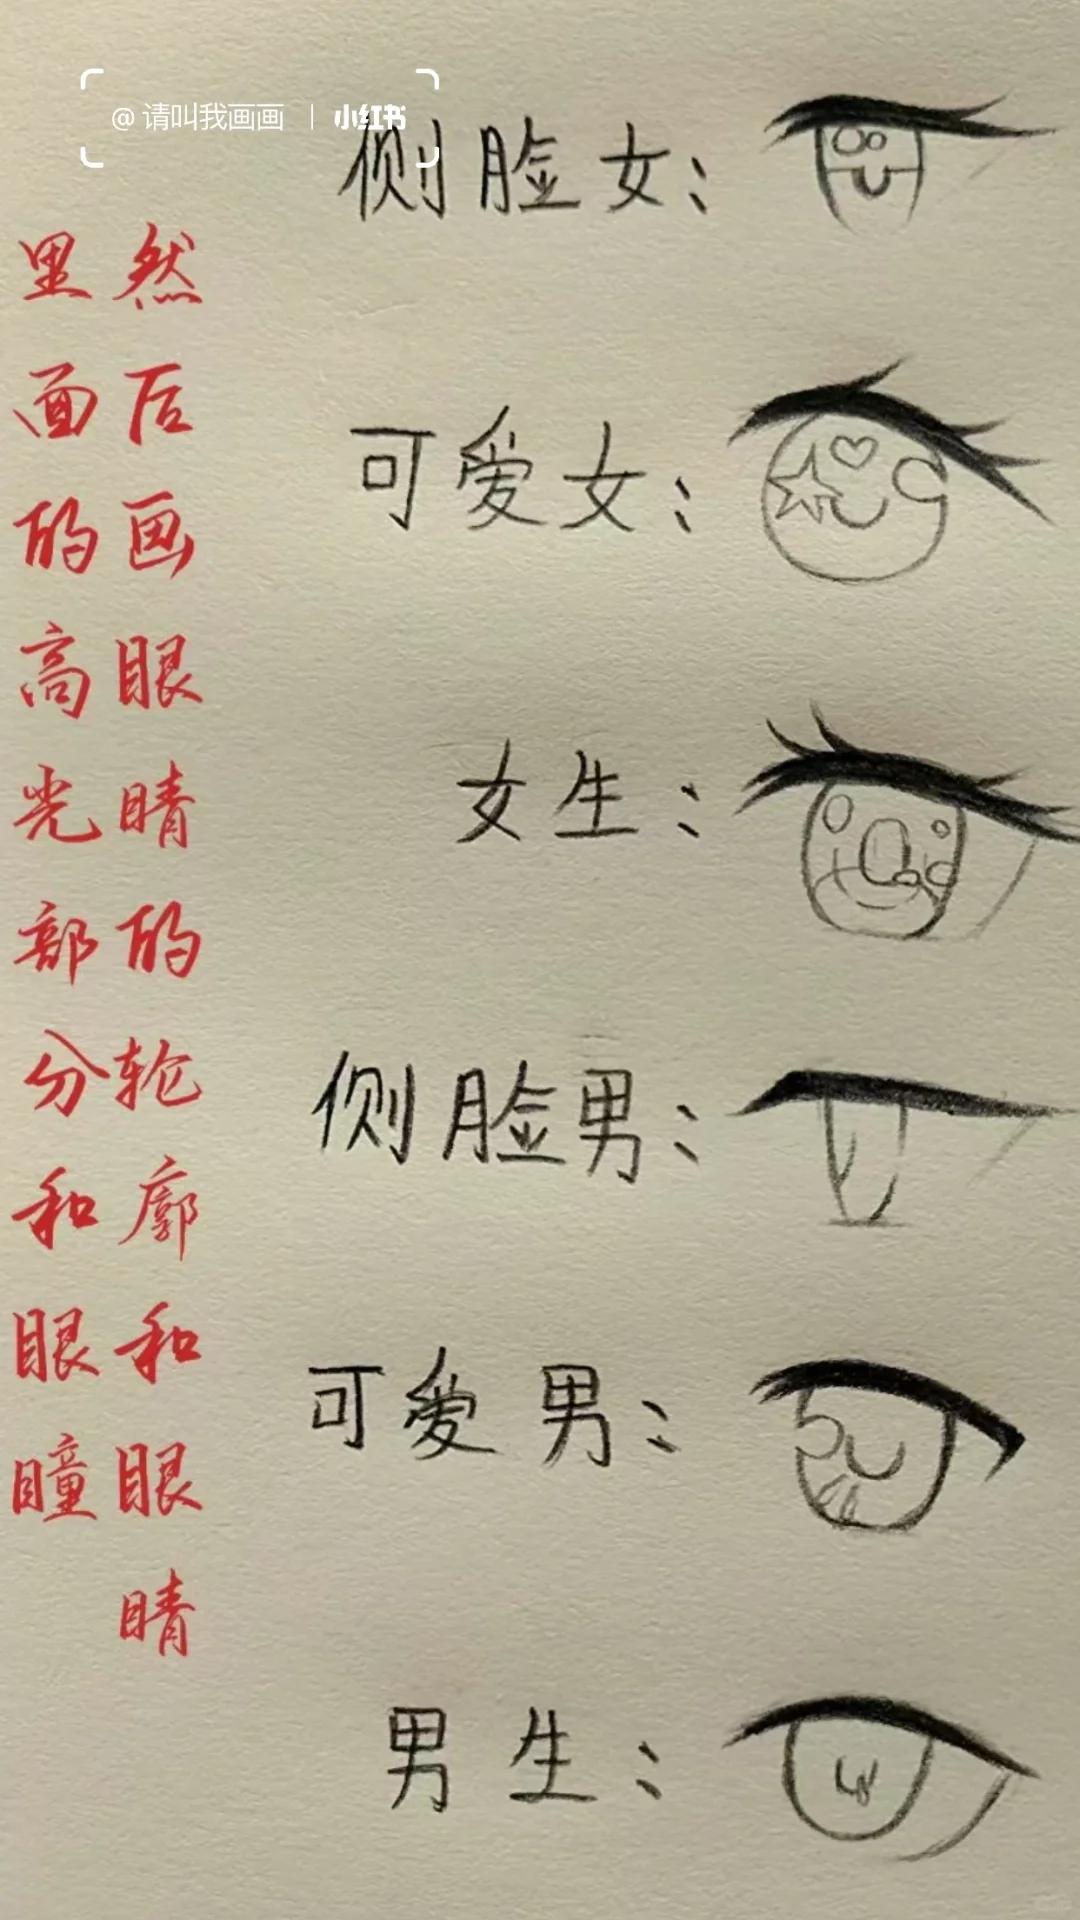 @请叫我画画 | 小红书
侧脸女：
可爱女：
女生：
侧脸男：
可爱男：
男生：
然后画眼睛的轮廓和眼睛
里面的高光部分和眼瞳